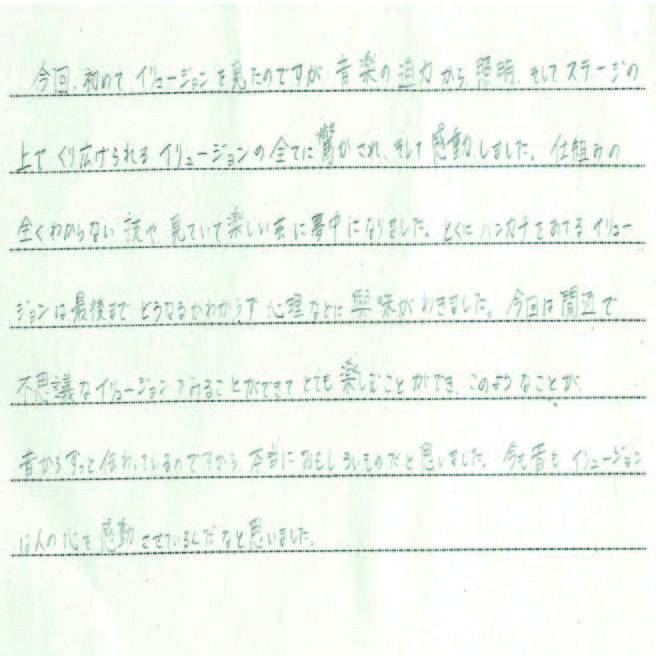 今回、初めてイリュージョンを見たのですが音楽の迫力から、照明、そしてステージの
上でくり広げられるイリュージョンの全てに驚かされ、そして感動しました。仕組みの
全くわからない技や見ていて楽しい芸に夢中になりました。とくにハンカチをあてるイリュー
ジョンは最後までどうなるかわからず心理などに興味がわきました。今回は間近で
不思議なイリュージョンをみることができてとても楽しむことができ、このようなことが
昔からずっと伝わっているのですから本当におもしろいものだと思いました。今も昔もイリュージョン
は人の心を感動させているんだなと思いました。